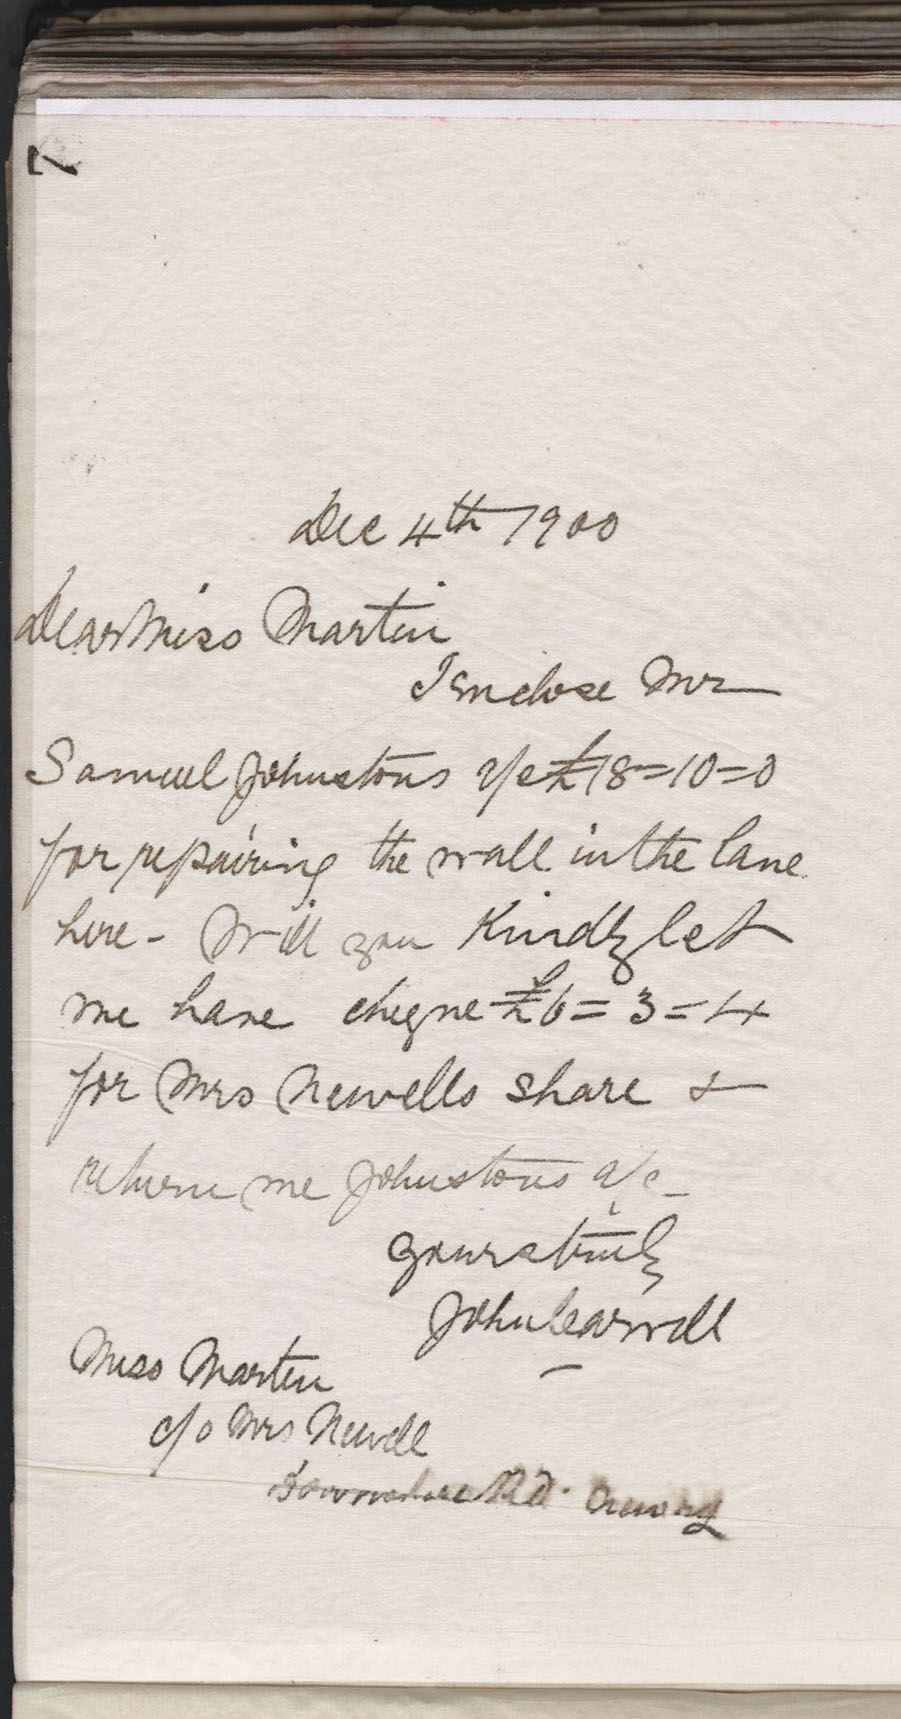 7
Dec 4th 1900
Dear Miss Martin
I Enclose Mr
Samuel Johnstons a/c £18=10=0
for repairing the wall in the lane
here - Will you Kindly let
me have cheque £6=3=4
for Mrs Newells share &
return me Johnstons a/c -
yours truly
John Carroll
Miss Martin
c/o Mrs Newell
Rd.